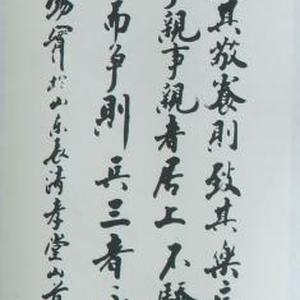 其敬養則致其樂
事親事親者居上不驕
而争則兵三者
於山东长清孝堂山